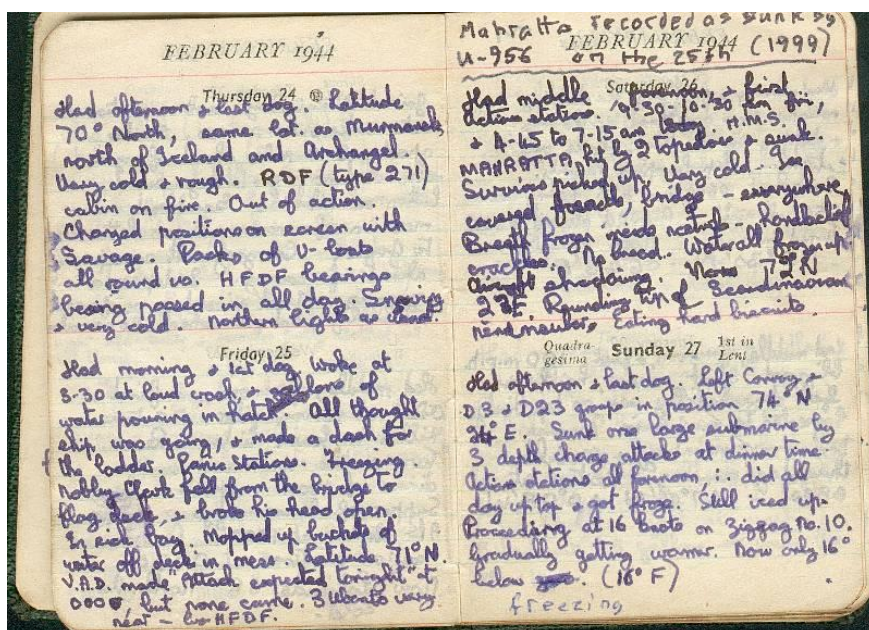 FEBRUARY 1944
Thursday 24
Had afternoon & last dog. Latitude
70° North, same lat. as Murmansk,
north of Iceland and Archangel.
Very cold & rough. RDF (type 271)
cabin on fire. Out of action.
Changed positions on screen with
Savage. Packs of U-boats
all round us. HFDF bearings
being passed in all day. Snowing
& very cold. Northern lights as usual.
Friday 25
Had morning & 1st dog. Woke at
5.30 at loud crash, & of
water pouring in hatch. All thought
ship was going, & made a dash for
the ladder. Panic Stations. Freezing.
Nobby Clark fell from the bridge to
flag deck, & broke his head open.
In sick bay. Mopped up buckets of
water off deck in mess. Latitude 71° N.
V.A.D. made "Attack expected tonight" at
0000, but none came. 3 Uboats very
near – by HFDF.
Mahratta recorded as sunk by
U-956 on the 25th (1999)
FEBRUARY 1944
Saturday 26
Had middle forenoon, & first
Action stations. 9.30-10.30 am
& 4-45 to 7-15 am H.M.S.
MAHRATTA hit by 2 topedoes & sunk.
Survivors picked up. Very cold. Ice
covered bridge – everywhere
Breath frozen – handkerchief
crackles. No bread. Water all frozen up
dripping. 72°N
23°E. Rounding tip of Scandinavian
Eating hard biscuits
Quadra-
gesima Sunday 27 1st in
Lent
Had afternoon & last dog. Left Convoy &
D.3 & D23 groups in position 74°N
24°E. Sunk one large submarine by
3 depth charge attacks at dinner time.
Action stations all forenoon, ∴ did all
day up top & got froze. Still iced up.
Proceeding at 16 knots on zigzag No. 10.
Gradually getting warmer. Now only 16°
below (16° F)
freezing